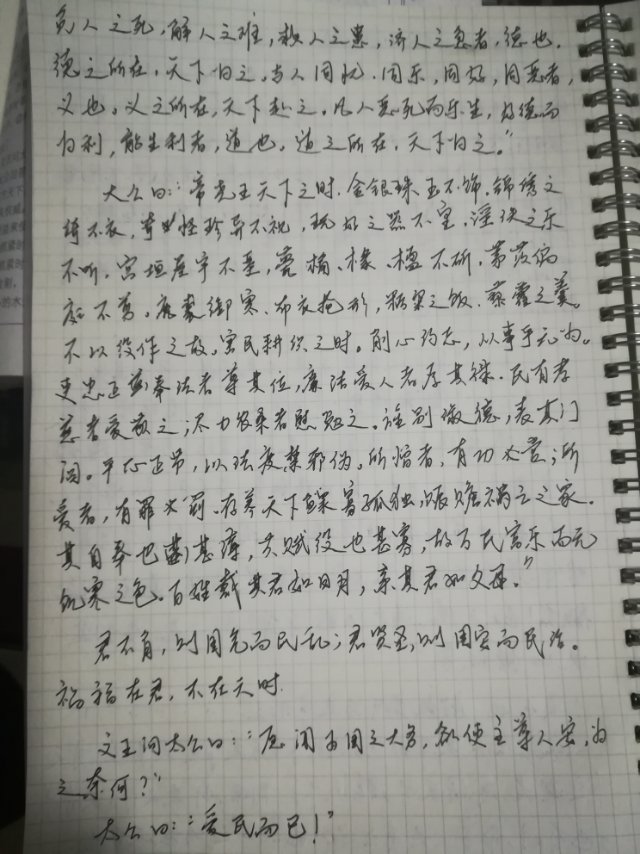 免人之死，解人之难，救人之患，济人之急者，德也。
德之所在，天下归之。与人同忧、同乐，同好，同恶者，
义也。义之所在，天下赴之。凡人恶死而乐生，好德而
归利，能生利者，道也，道之所在，天下归之。”
太公曰：“帝尧王天下之时，金银珠玉不饰，锦绣文
绮不衣，奇怪珍异不视，玩好之器不宝，淫佚之乐
不听，宫垣屋宇不垩，甍、桷、椽、楹不斫，茅茨徧
庭不剪。鹿裘御寒、布衣掩形，粝粱之饭、藜藿之羹。
不以役作之故，害民耕织之时。削心约志，从事乎无为。
吏忠正奉法者尊其位，廉洁爱人者厚其禄。民有孝
慈者爱敬之；尽力农桑者慰勉之。旌别淑德，表其门
闾。平心正节，以法度禁邪伪。所憎者，有功必赏；所
爱者，有罪必罚。存养天下鳏寡孤独，赈赡祸亡之家。
其自奉也甚薄，其赋役也甚寡，故万民富乐而无
饥寒之色。百姓戴其君如日月，亲其君如父母。”
君不肖，则国危而民乱；君贤圣，则国安而民治。
祸福在君，不在天时.
文王问太公曰：“愿闻为国之大务，欲使主尊人安，为
之奈何？”
太公曰：“爱民而已！”